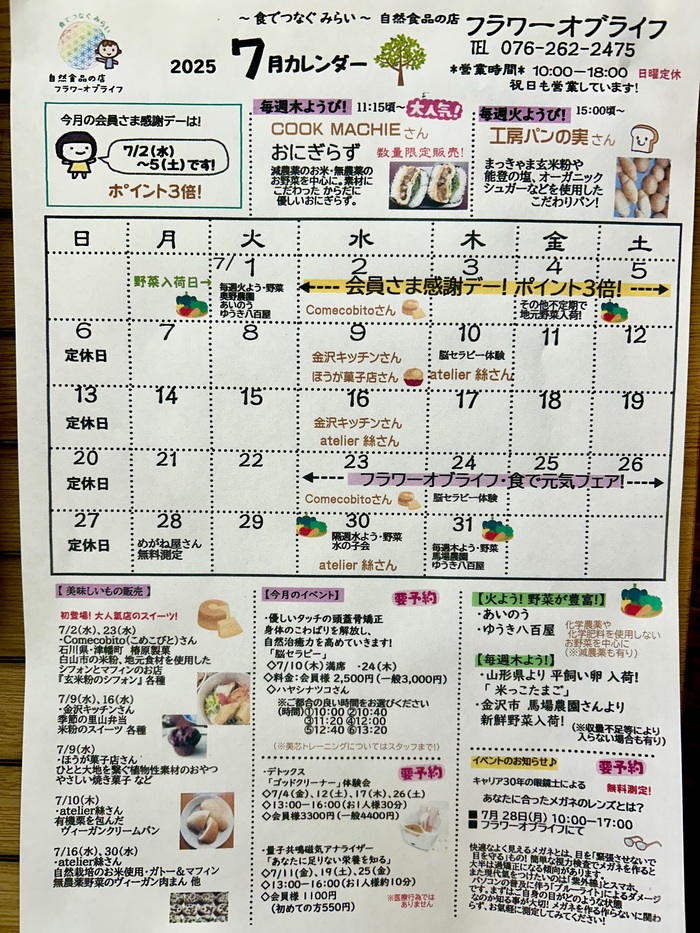 食でつなぐ みらい
自然食品の店
フラワーオブライフ
～ 食でつなぐ みらい ～ 自然食品の店 フラワーオブライフ
TEL 076-262-2475
2025 7月カレンダー
*営業時間* 10:00―18:00 日曜定休
祝日も営業しています!
今月の会員さま感謝デーは!
7/2(水)
～5(土)です!
ポイント3倍!
毎週木ようび! 11:15頃~ 大人気!
COOK MACHIEさん
おにぎらず 数量限定販売!
減農薬のお米・無農薬の
お野菜を中心に。素材に
こだわった からだに
優しいおにぎらず。
毎週火ようび! 15:00頃~
工房パンの実さん
まっきゃま玄米粉や
能登の塩、オーガニック
シュガーなどを使用した
こだわりパン!
日 月 火 水 木 金 土
野菜入荷日→
7/1
毎週火よう・野菜
奥野農園
あいのう
ゆうき八百屋
2 3 4 5
会員さま感謝デー! ポイント3倍!
Comecobitoさん
その他不定期で
地元野菜入荷!
6 7 8 9 10 11 12
定休日
金沢キッチンさん
ほうが菓子店さん
脳セラピー体験
atelier 絲さん
13 14 15 16 17 18 19
定休日
金沢キッチンさん
atelier 絲さん
20 21 22 23 24 25 26
定休日
フラワーオブライフ・食で元気フェア!
Comecobitoさん
脳セラピー体験
27 28 29 30 31
定休日
めがね屋さん
無料測定
隔週水よう・野菜
水の子会
atelier 絲さん
毎週木よう・野菜
馬場農園
ゆうき八百屋
【 美味しいもの販売 】
初登場! 大人気店のスイーツ!
7/2(水)、23(水)
・Comecobito(こめこびと)さん
石川県・津幡町 椿原製菓
白山市の米粉、地元食材を使用した
シフォンとマフィンのお店
『玄米粉のシフォン』各種
7/9(水)、16(水)
・金沢キッチンさん
季節の里山弁当
米粉のスイーツ 各種
7/9(水)
・ほうが菓子店さん
ひとと大地を繋ぐ植物性素材のおやつ
やさしい焼き菓子 など
7/10(木)
・atelier絲さん
有機栗を包んだ
ヴィーガンクリームパン
7/16(水)、30(水)
・atelier絲さん
自然栽培のお米使用・ガトー&マフィン
無農薬野菜のヴィーガン肉まん 他
【今月のイベント】 要予約
・優しいタッチの頭蓋骨矯正
身体のこわばりを解放し、
自然治癒力を高めていきます!
「脳セラピー」
◇7/10(木)満席 ・24(木)
◇料金:会員様 2,500円(一般3,000円)
◇ハヤシナツコさん
※ご都合の良い時間をお選びください
(時間)①10:00 ②10:40
③11:20 ④12:00
⑤12:40 ⑥13:20
(※美芯トレーニングについてはスタッフまで!)
・デトックス 要予約
「ゴッドクリーナー」体験会
◇7/4(金)、12(土)、17(木)、26(土)
◇13:00-16:00(お1人様30分)
◇会員様3300円(一般4400円)
・量子共鳴磁気アナライザー
「あなたに足りない栄養を知る」
◇7/11(金)、19(土)、25(金)
◇13:00-16:00(お1人様約10分)
◇会員様 1100円
(初めての方550円)
※医療行為では
ありません
【火よう! 野菜が豊富!】
・あいのう
・ゆうき八百屋
化学農薬や
化学肥料を使用しない
お野菜を中心に
(※減農薬も有り)
【毎週木よう!】
・山形県より 平飼い卵 入荷!
「 米っこたまご」
・金沢市 馬場農園さんより
新鮮野菜入荷!
(※収量不足等により
入らない場合も有り)
イベントのお知らせ♪ 要予約
キャリア30年の眼鏡士による 無料測定!
あなたに合ったメガネのレンズとは?
■ 7月 28日(月) 10:00―17:00
■ フラワーオブライフにて
快適なよく見えるメガネとは、目を「緊張させないで
目を守る」もの! 簡単な視力検査でメガネを作ると
大半は過矯正になる傾向があります。
また現代気をつけたいのは「紫外線」とスマホ、
パソコンの普及に伴う「ブルーライト」によるダメージ
です。まずはご自身の目がどのような状態
なのか知る事が大切! メガネを作る作らないに関わ
らず、お気軽に測定してみてください!